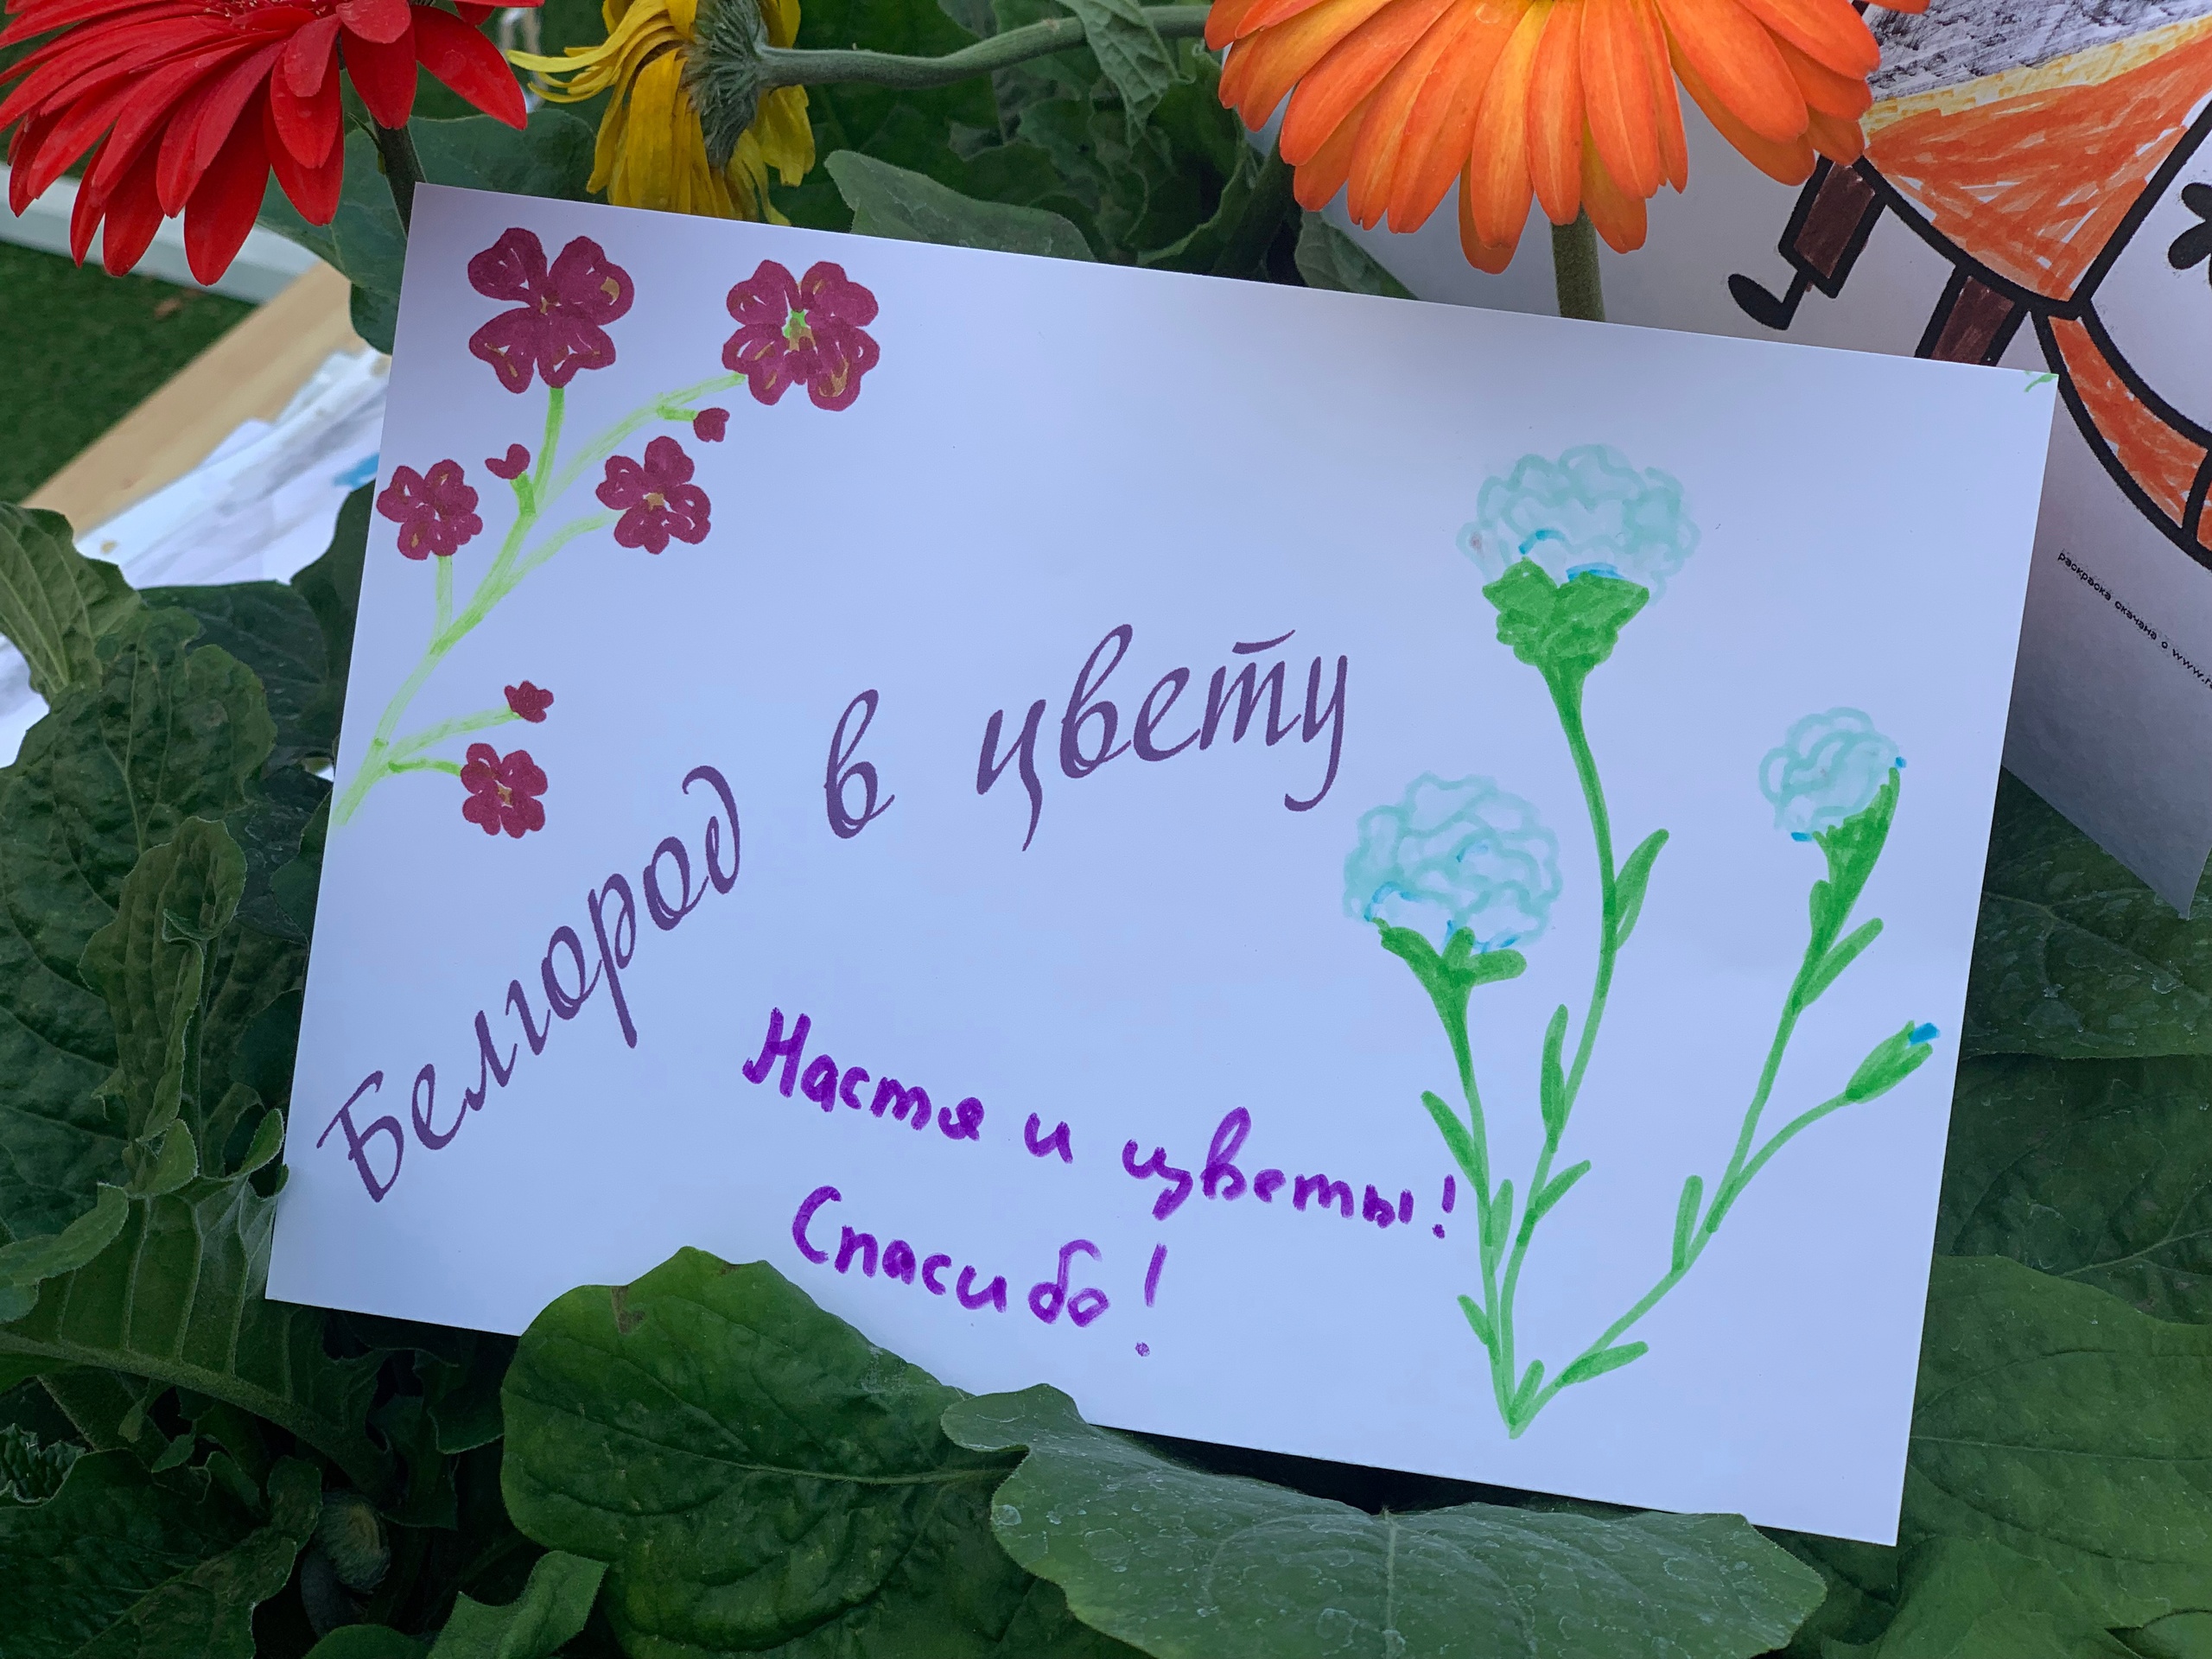 Белгород в цвету
Настя и цветы!
Спасибо!
раскраска скачана с www.r